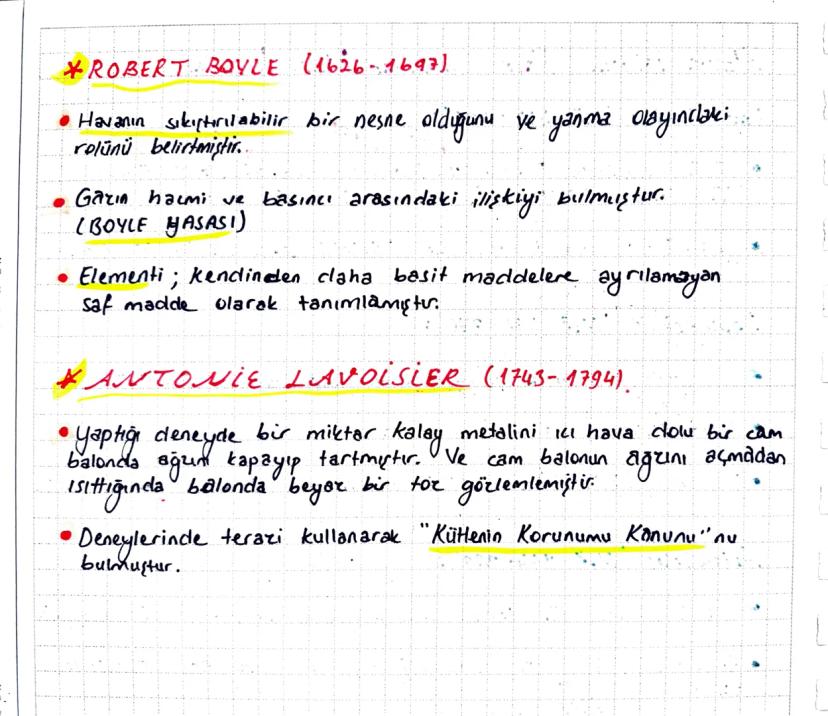 * ROBERT BOYLE (1626-1697)
• Havanın sıkıştırılabilir bir nesne olduğunu ve yanma olayındaki
rolünü belirtmiştir.
• Gazın hacmi ve basıncı arasındaki ilişkiyi bulmuştur.
(BOYLE YASASI)
• Elementi ; kendinden daha basit maddelere ayrılamayan
saf madde olarak tanımlamıştır.
* ANTONİE LAVOİSİER (1743-1794)
• Yaptığı deneyde bir miktar kalay metalini içi hava dolu bir cam
balonda ağzını kapayıp tartmıştır. Ve cam balonun ağzını açmadan
ısıttığında balonda beyaz bir toz gözlemlemiştir.
• Deneylerinde terazi kullanarak "Kütlenin Korunumu Kanunu"nu
bulmuştur.